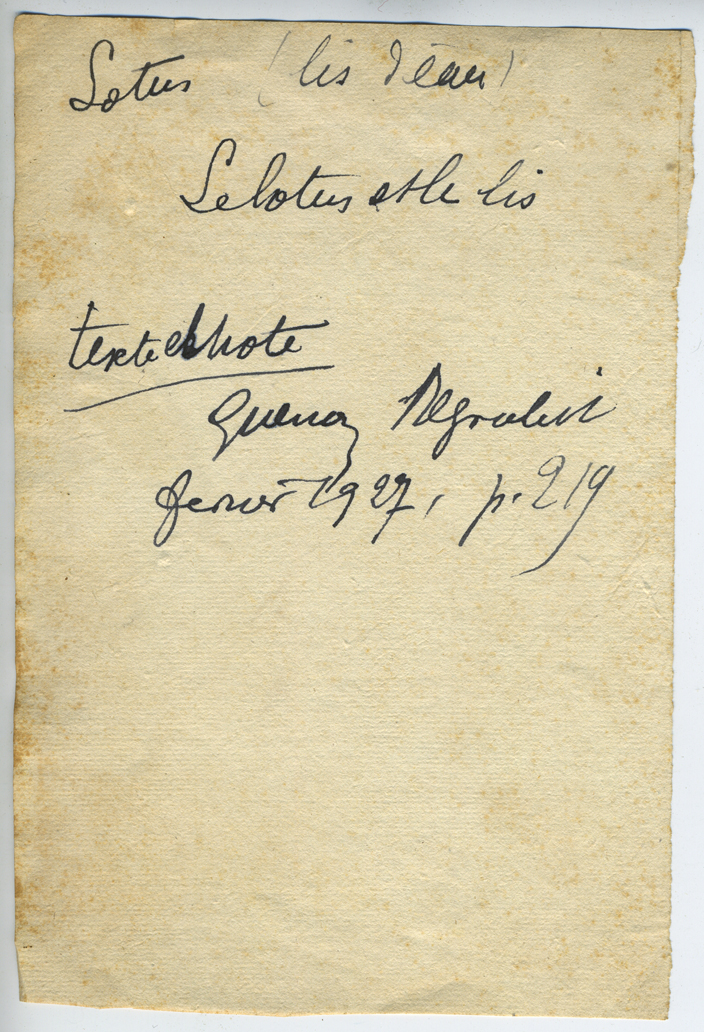 Lotus (lis d'eau)
Le lotus et le lis
texte et note
Guenon Regnabit
fevrier 1927, p. 219